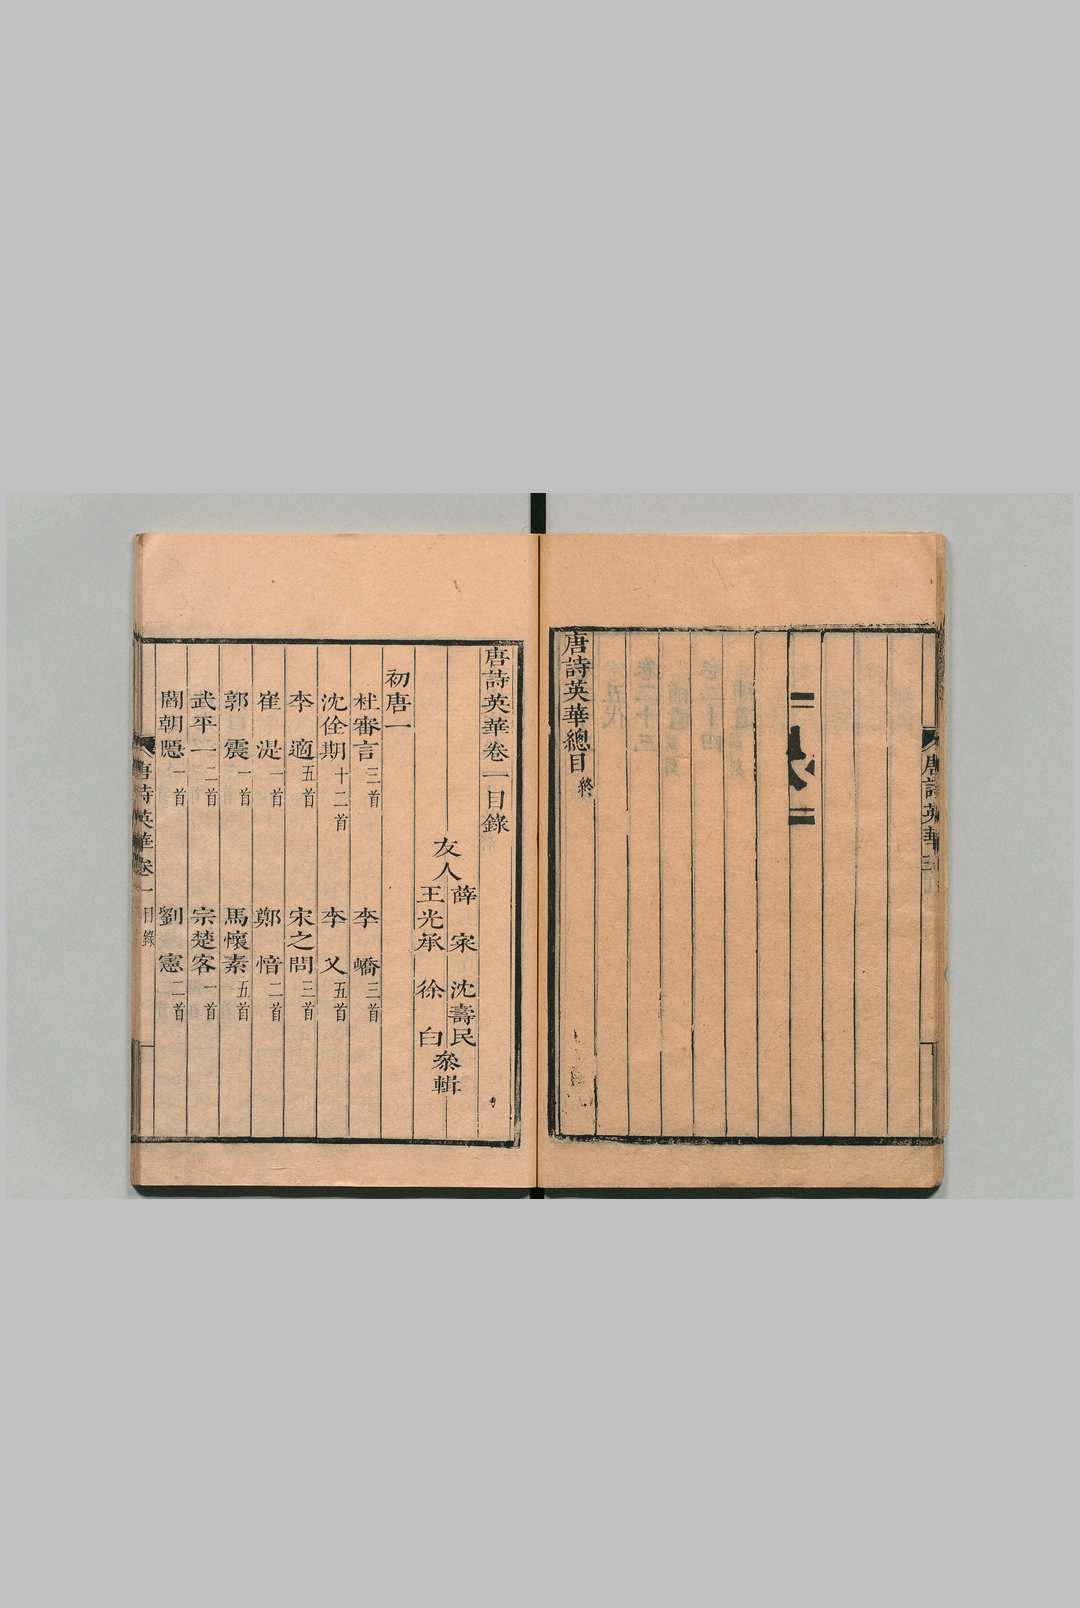 唐詩英華總目終
唐詩英華
唐詩英華卷一目錄
友人薛寀 沈壽民
王光承 徐白 叅輯
初唐一
杜審言三首 李嶠三首
沈佺期十二首 李乂五首
李適五首 宋之問三首
崔湜一首 鄭愔二首
郭震一首 馬懷素五首
武平一二首 宗楚客一首
閻朝隱一首 劉憲二首
唐詩英華卷一 目錄